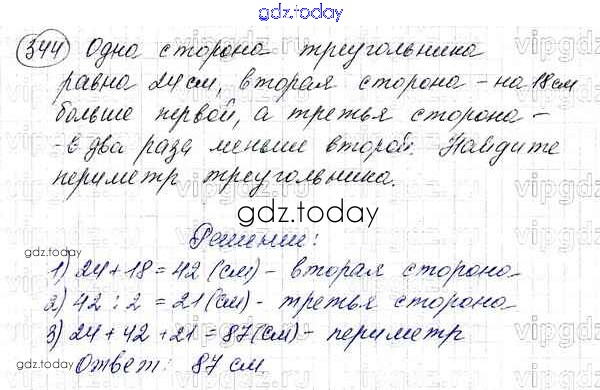 gdz.today
344 Одна сторона треугольника
равна 24 см, вторая сторона – на 18 см
больше первой, а третья сторона –
– в два раза меньше второй. Найдите
периметр треугольника.
gdz.today
Решение:
gdz.today
1) 24 + 18 = 42 (см) – вторая сторона
2) 42 : 2 = 21 (см) – третья сторона
3) 24 + 42 + 21 = 87 (см) – периметр
gdz.today
Ответ: 87 см.